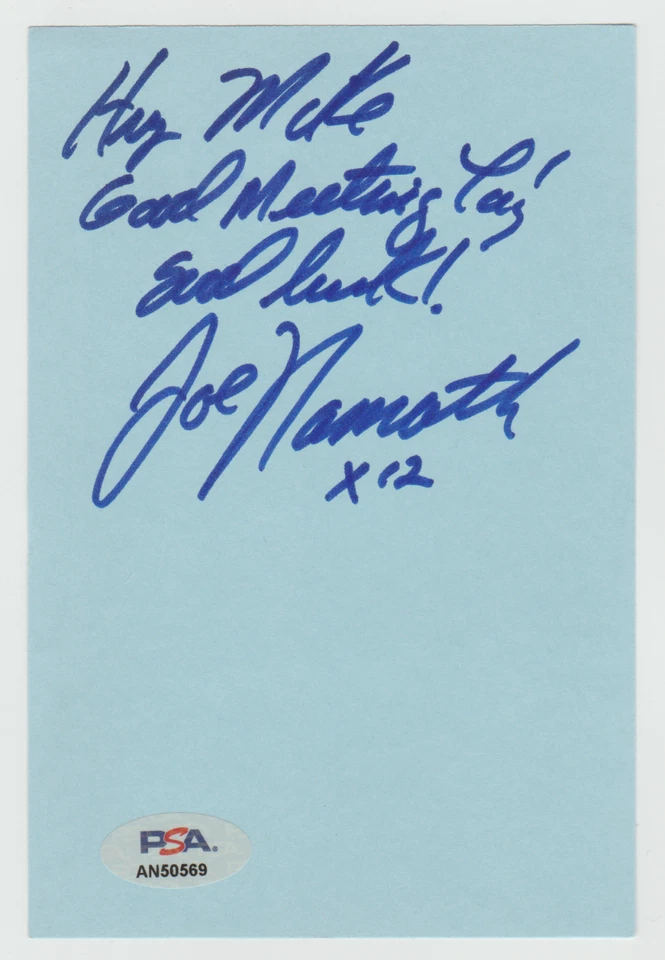 Hey Mike
Good Meeting Ya,
Good luck!
Joe Namath
X 12
PSA.
AN50569